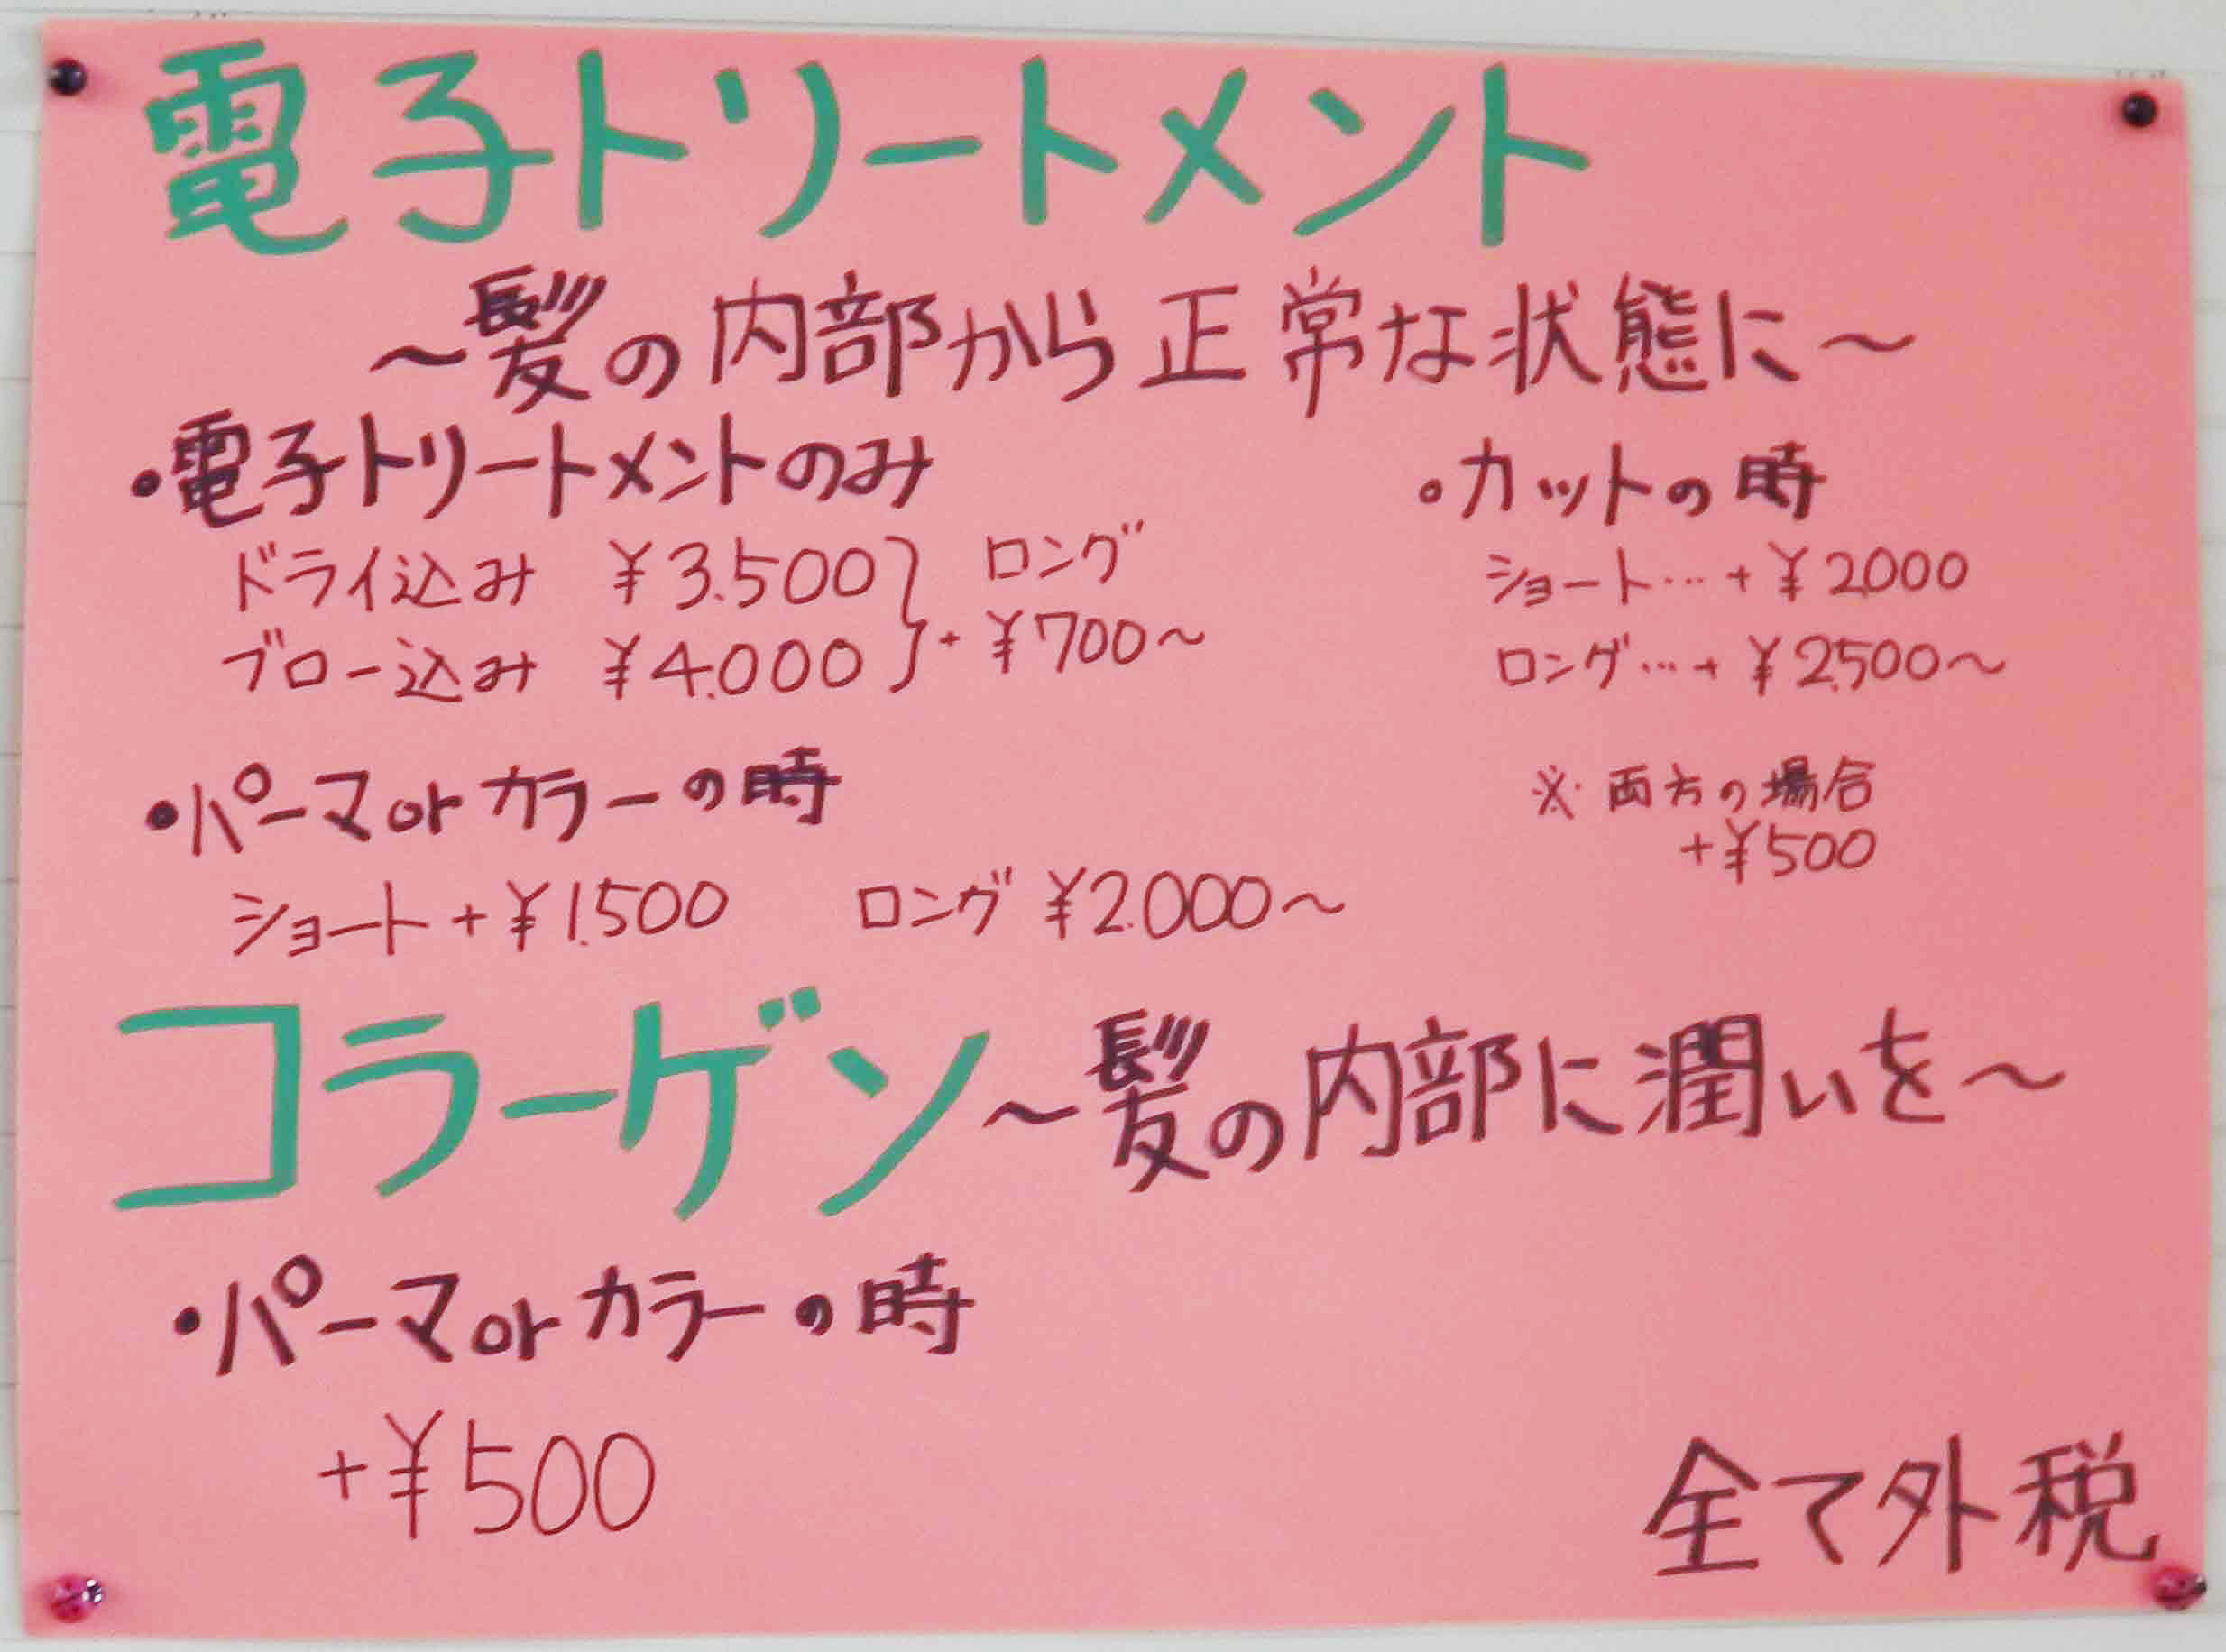 電子トリートメント
～髪の内部から正常な状態に～
・電子トリートメントのみ
ドライ込み ¥3.500 } ロング
ブロー込み ¥4.000 } + ¥700～
・カットの時
ショート…+ ¥2.000
ロング…+ ¥2.500～
※両方の場合
+¥500
・パーマorカラーの時
ショート+¥1.500 ロング ¥2.000～
コラーゲン～髪の内部に潤いを～
・パーマorカラーの時
+¥500
全て外税